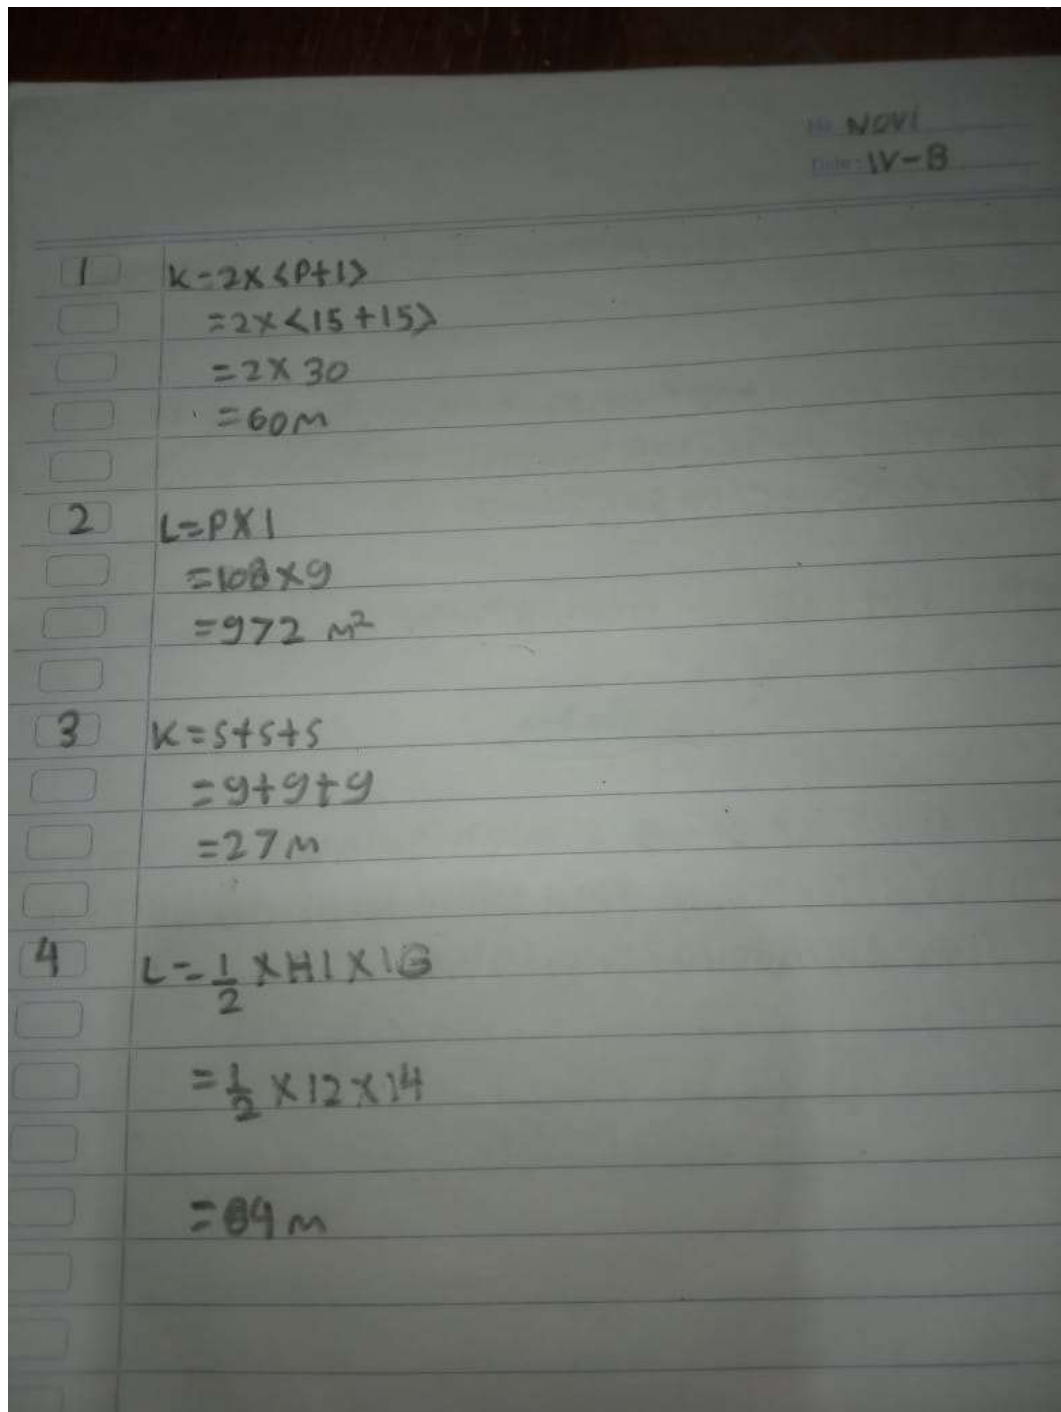 No NOVI
Date: IV-B
1 K=2X<P+l>
=2X<15+15>
=2X30
=60m
2 L=PXl
=108X9
=972 m²
3 K=s+s+s
=9+9+9
=27m
4 L=1/2 XHIXIG
=1/2 X12X14
=84 m